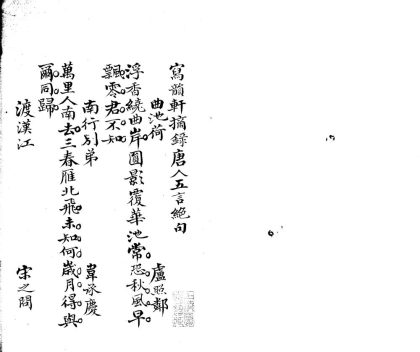 寫韻軒摘録唐人五言絶句
曲池荷 盧照鄰
浮香繞曲岸圓影覆華池常恐秋風早
飄零君不知
南行别弟 韋承慶
萬里人南去三春雁北飛未知何歲月得與
爾同歸
渡漢江 宋之問